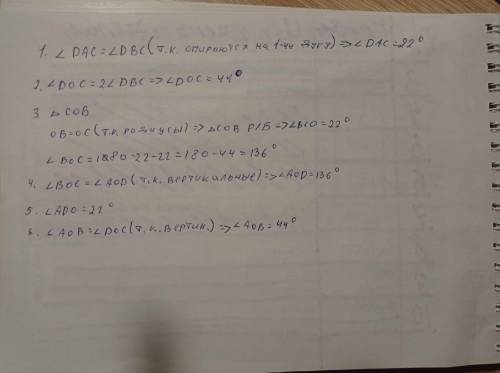 1. ∠DAC=∠DBC(т.к. опираются на 1-ну дугу)=>∠DAC=22°
2. ∠DOC=2∠DBC=>∠DOC=44°
3. △COB
OB=OC(т.к. радиусы)=>△COB Р/Б=>∠BCO=22°
∠BOC=180-22-22=180-44=136°
4. ∠BOC=∠AOD(т.к. вертикальные)=>∠AOD=136°
5. ∠ADO=22°
6. ∠AOB=∠DOC(т.к. вертик.)=>∠AOB=44°